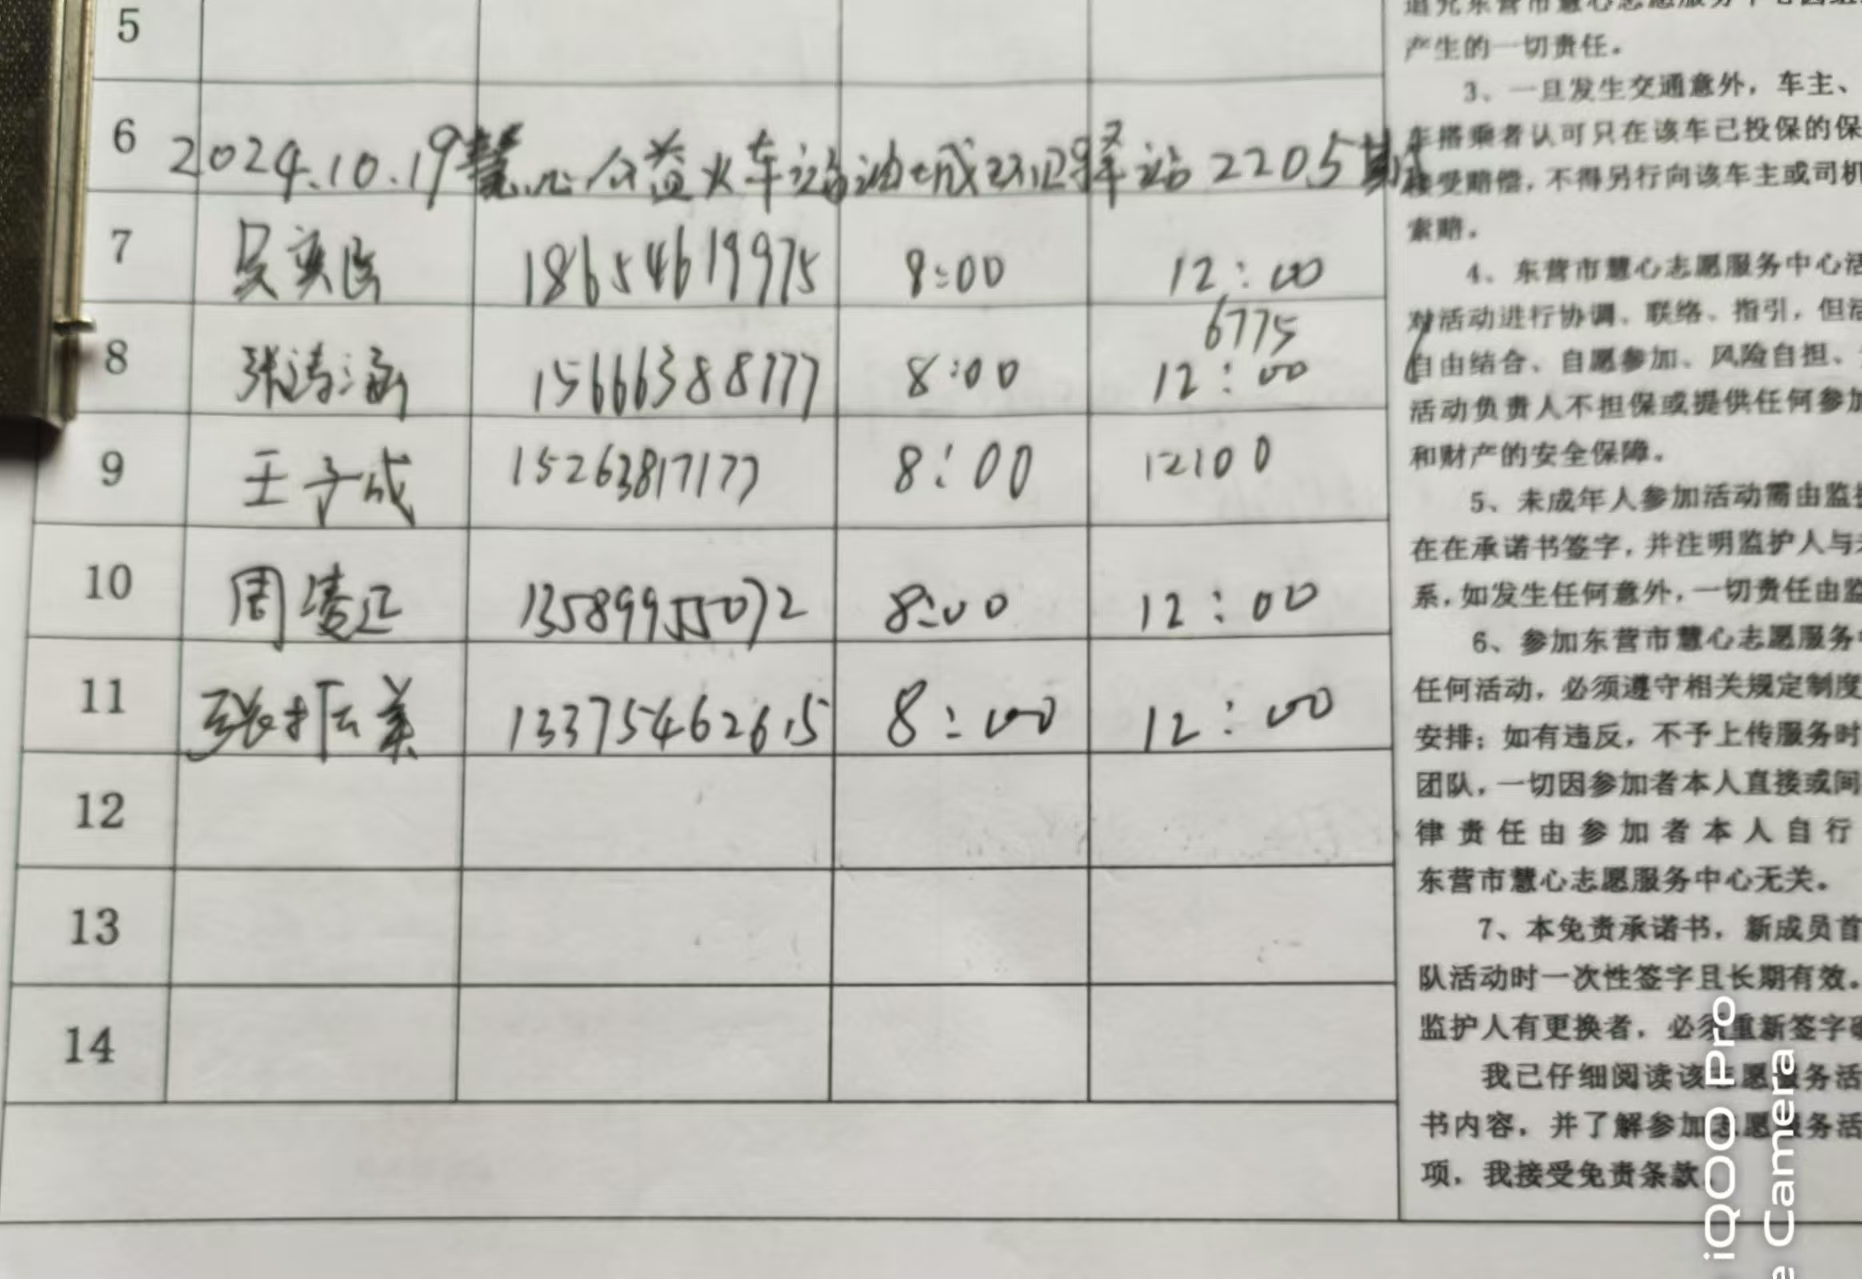 5
6 2024.10.19慧心公益火车站油城双卫驿站2205期
7 吴 18654619975 8:00 12:00
6775
8 张涛涵 15666388777 8:00 12:00
9 王子成 15263817177 8:00 12:00
10 周清正 13589955072 8:00 12:00
11 张振美 13375462615 8:00 12:00
12
13
14
追究东营市慧心志愿服务中心因组
产生的一切责任。
3、一旦发生交通意外，车主、
车搭乘者认可只在该车已投保的保
接受赔偿，不得另行向该车主或司机
索赔。
4、东营市慧心志愿服务中心活
对活动进行协调、联络、指引，但活
自由结合、自愿参加、风险自担、
活动负责人不担保或提供任何参加
和财产的安全保障。
5、未成年人参加活动需由监护
在在承诺书签字，并注明监护人与未
系，如发生任何意外，一切责任由监
6、参加东营市慧心志愿服务中
任何活动，必须遵守相关规定制度
安排；如有违反，不予上传服务时
团队，一切因参加者本人直接或间
律责任由参加者本人自行
东营市慧心志愿服务中心无关。
7、本免责承诺书，新成员首
队活动时一次性签字且长期有效。
监护人有更换者，必须重新签字确
我已仔细阅读该志愿服务活
书内容，并了解参加志愿服务活
项，我接受免责条款。
iQOO Pro
e Camera